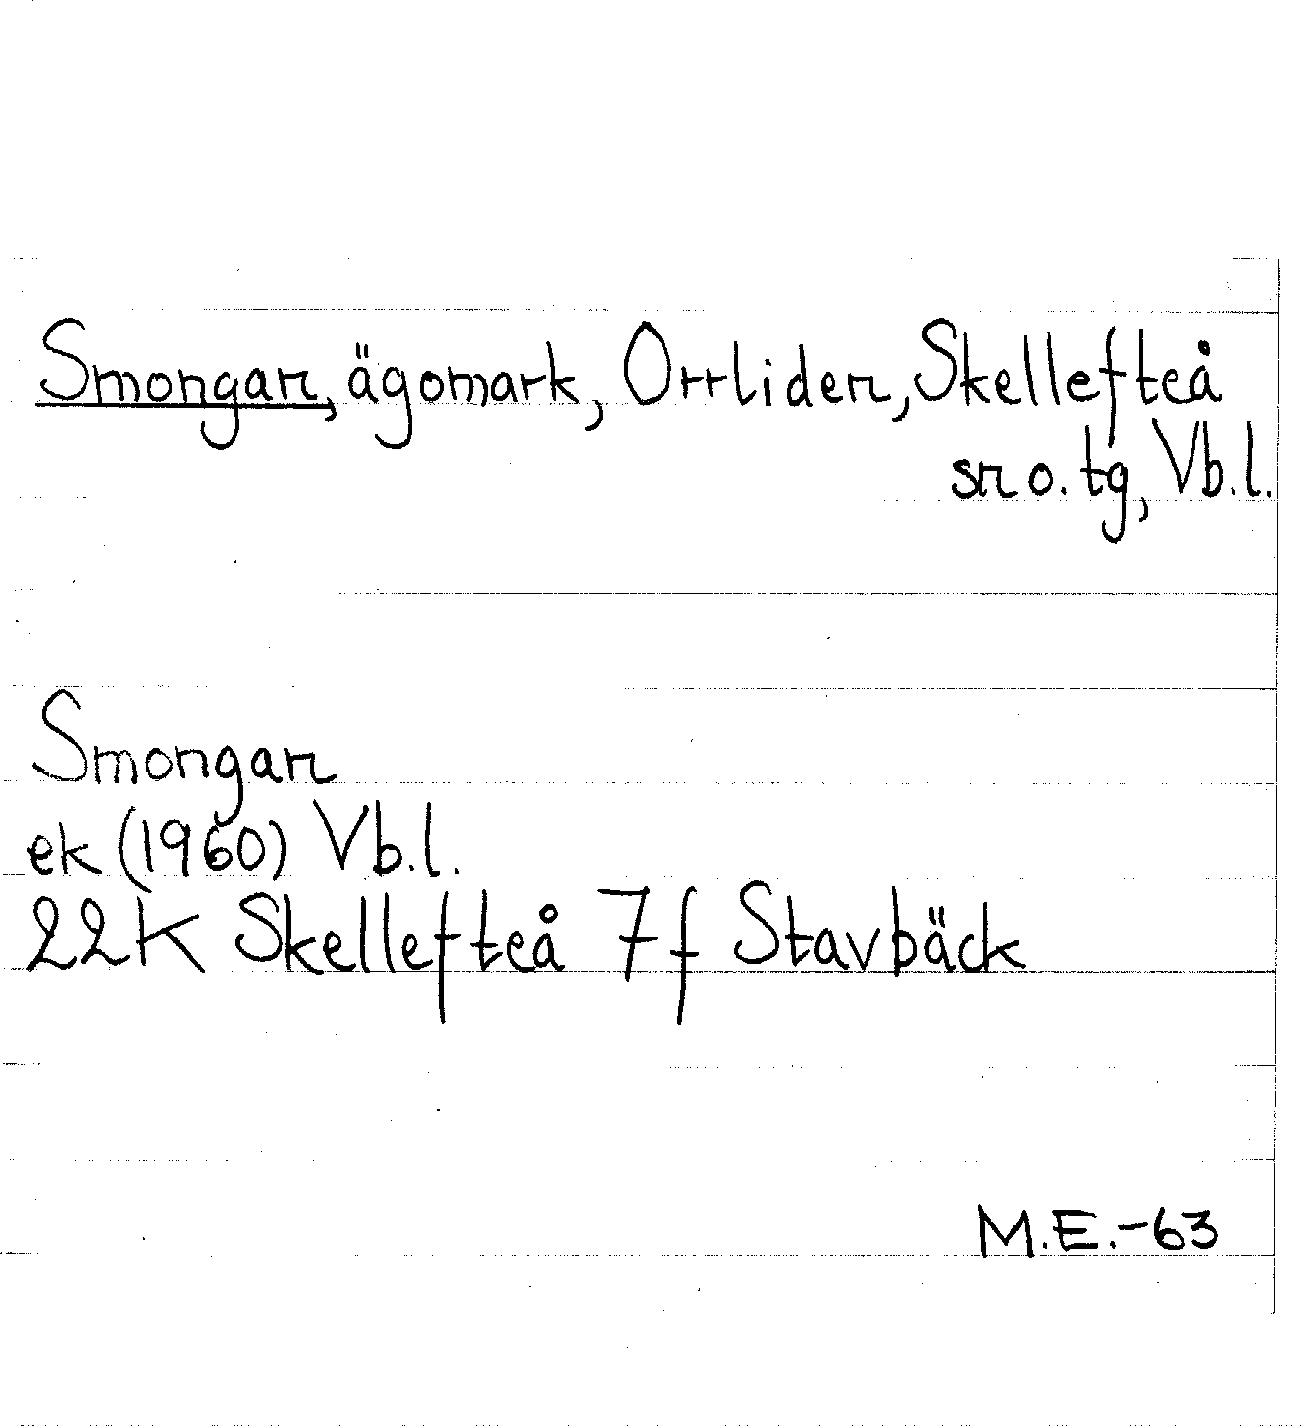 Smongarn, ägomark, Orrliden, Skellefteå
sn o. tg, Vb.l.
Smongarn
ek (1960) Vb.l.
22K Skellefteå 7f Stavbäck
M.E.-63